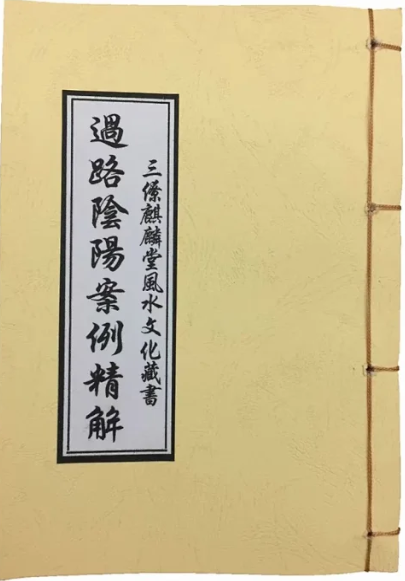 三僚麒麟堂風水文化藏書
過路陰陽案例精解